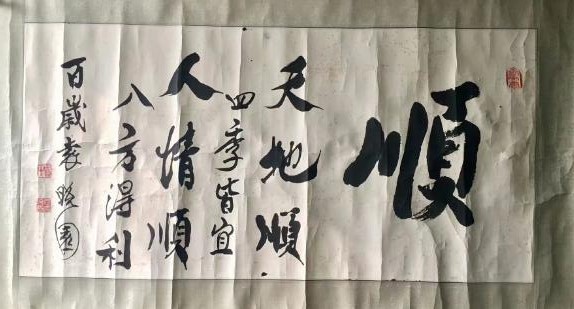 順
天地順
四季皆宜
人情順
八方得利
百歲袁曉園